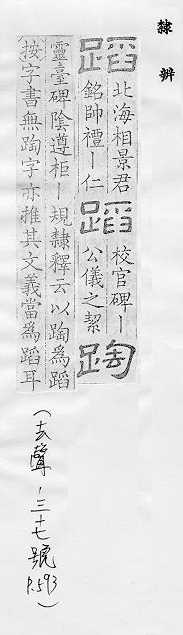 隸辨
蹈
北海相景君
銘帥禮丨仁
蹈
校官碑丨
公儀之絜
靈臺碑陰遵柜丨規隸釋云以為蹈
按字書無字亦推其文義當為蹈耳
(去聲-三十七號 P.593)